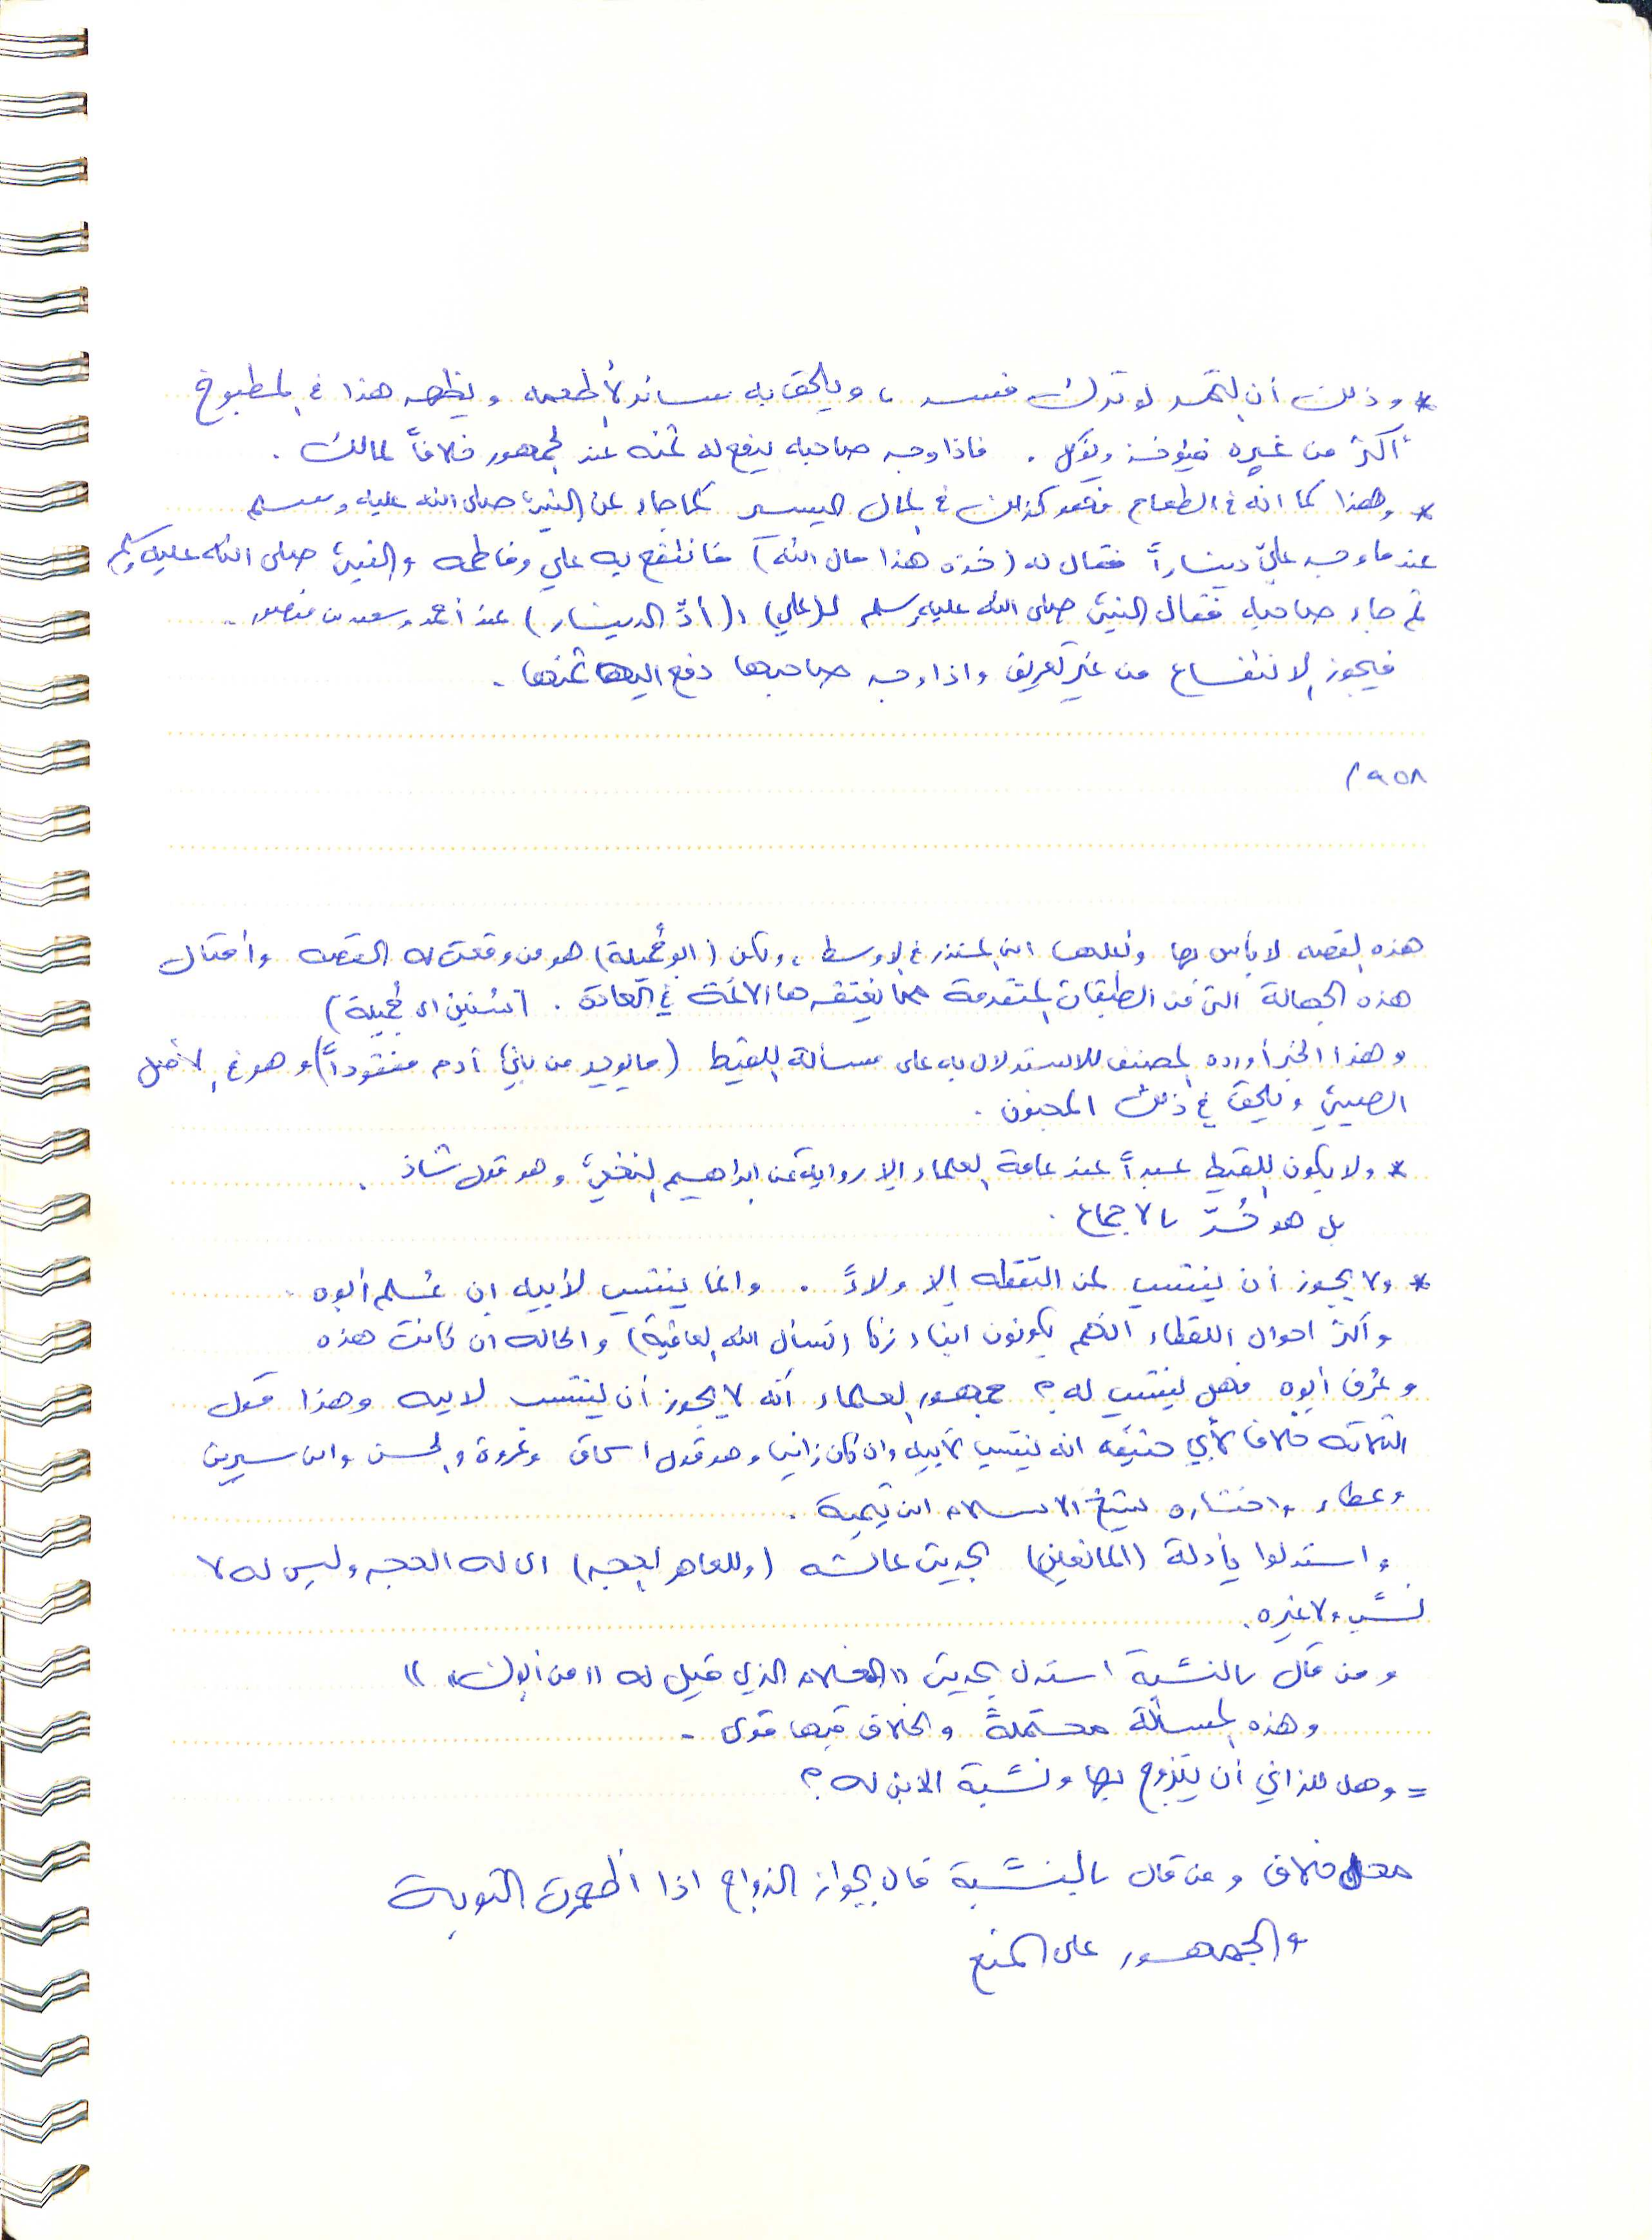 * وذلك أن التمر لو ترك فسد ، ويلحق به سائر الأطعمه ويظهر هذا في المطبوخ
أكثر من غيره فيؤخذ ويؤكل . فاذا وجد صاحبه يدفع له ثمنه عند الجمهور خلافاً لمالك .
* وهذا كما انه في الطعام فهو كذلك في المال اليسير كما جاء عن النبيّ صلى الله عليه وسلم
عندما وجد عليّ ديناراً فقال له (خذه هذا مال الله) فانتفع به علي وفاطمه والنبيّ صلى الله عليه وسلم
ثم جاء صاحبه فقال النبيّ صلى الله عليه وسلم لـ(علي) : (أدِّ الدينار) عند أحمد وسعيد بن منصور .
فيجوز الانتفاع من غير تعريف واذا وجد صاحبها دفع اليها ثمنها .
١٩٥٨
هذه القصه لا بأس بها ونقلها ابن المنذر في الاوسط ، ولكن (ابو جُميلة) هو من وقعت له القصه وأمثال
هذه الجهالة التي في الطبقات المتقدمة مما يغتفرها الائمة في العادة . (سُنين ابي جُميلة)
وهذا الخبر أورده المصنف للاستدلال به على مسألة اللقيط (ما يوجد من بني آدم منقوداً) وهو في الأصل
الصبيّ ويلحق في ذلك المجنون .
* ولا يكون اللقيط عبداً عند عامة العلماء إلا رواية عن ابراهيم النخعيّ وهو قول شاذ .
بل هو حُرّ بالاجماع .
* ولا يجوز أن ينتسب لمن التقطه إلا ولاءً . وانما ينتسب لأبيه إن عُلم أبوه .
وأكثر احوال اللقطاء انهم يكونون ابناء زنا (نسأل الله العافية) والحاله ان كانت هذه
وعُرف أبوه فهل ينتسب له ؟ جمهور العلماء أنه لا يجوز أن ينتسب لابيه وهذا قول
الثلاثه خلافا لأبي حنيفه انه ينتسب لأبيه وان كان زانيا وهو قول اسحاق وعروة والحسن وابن سيرين
وعطاء واختاره شيخ الاسلام ابن تيمية .
واستدلوا بأدلة (المانعين) بحديث عائشه (وللعاهر الحجر) اي له الحجر وليس له لا
نسب ولا غيره .
ومن قال بالنسبة استدل بحديث "الغلام الذي قيل له "من أبوك" "
وهذه المسألة محتملةً والخلاف فيها قوي .
= وهل للزاني أن يتزوج بها ونسبة الابن له ؟
محل خلاف ومن قال بالنسبة قال بجواز الزواج اذا اظهرت التوبة
والجمهور على المنع